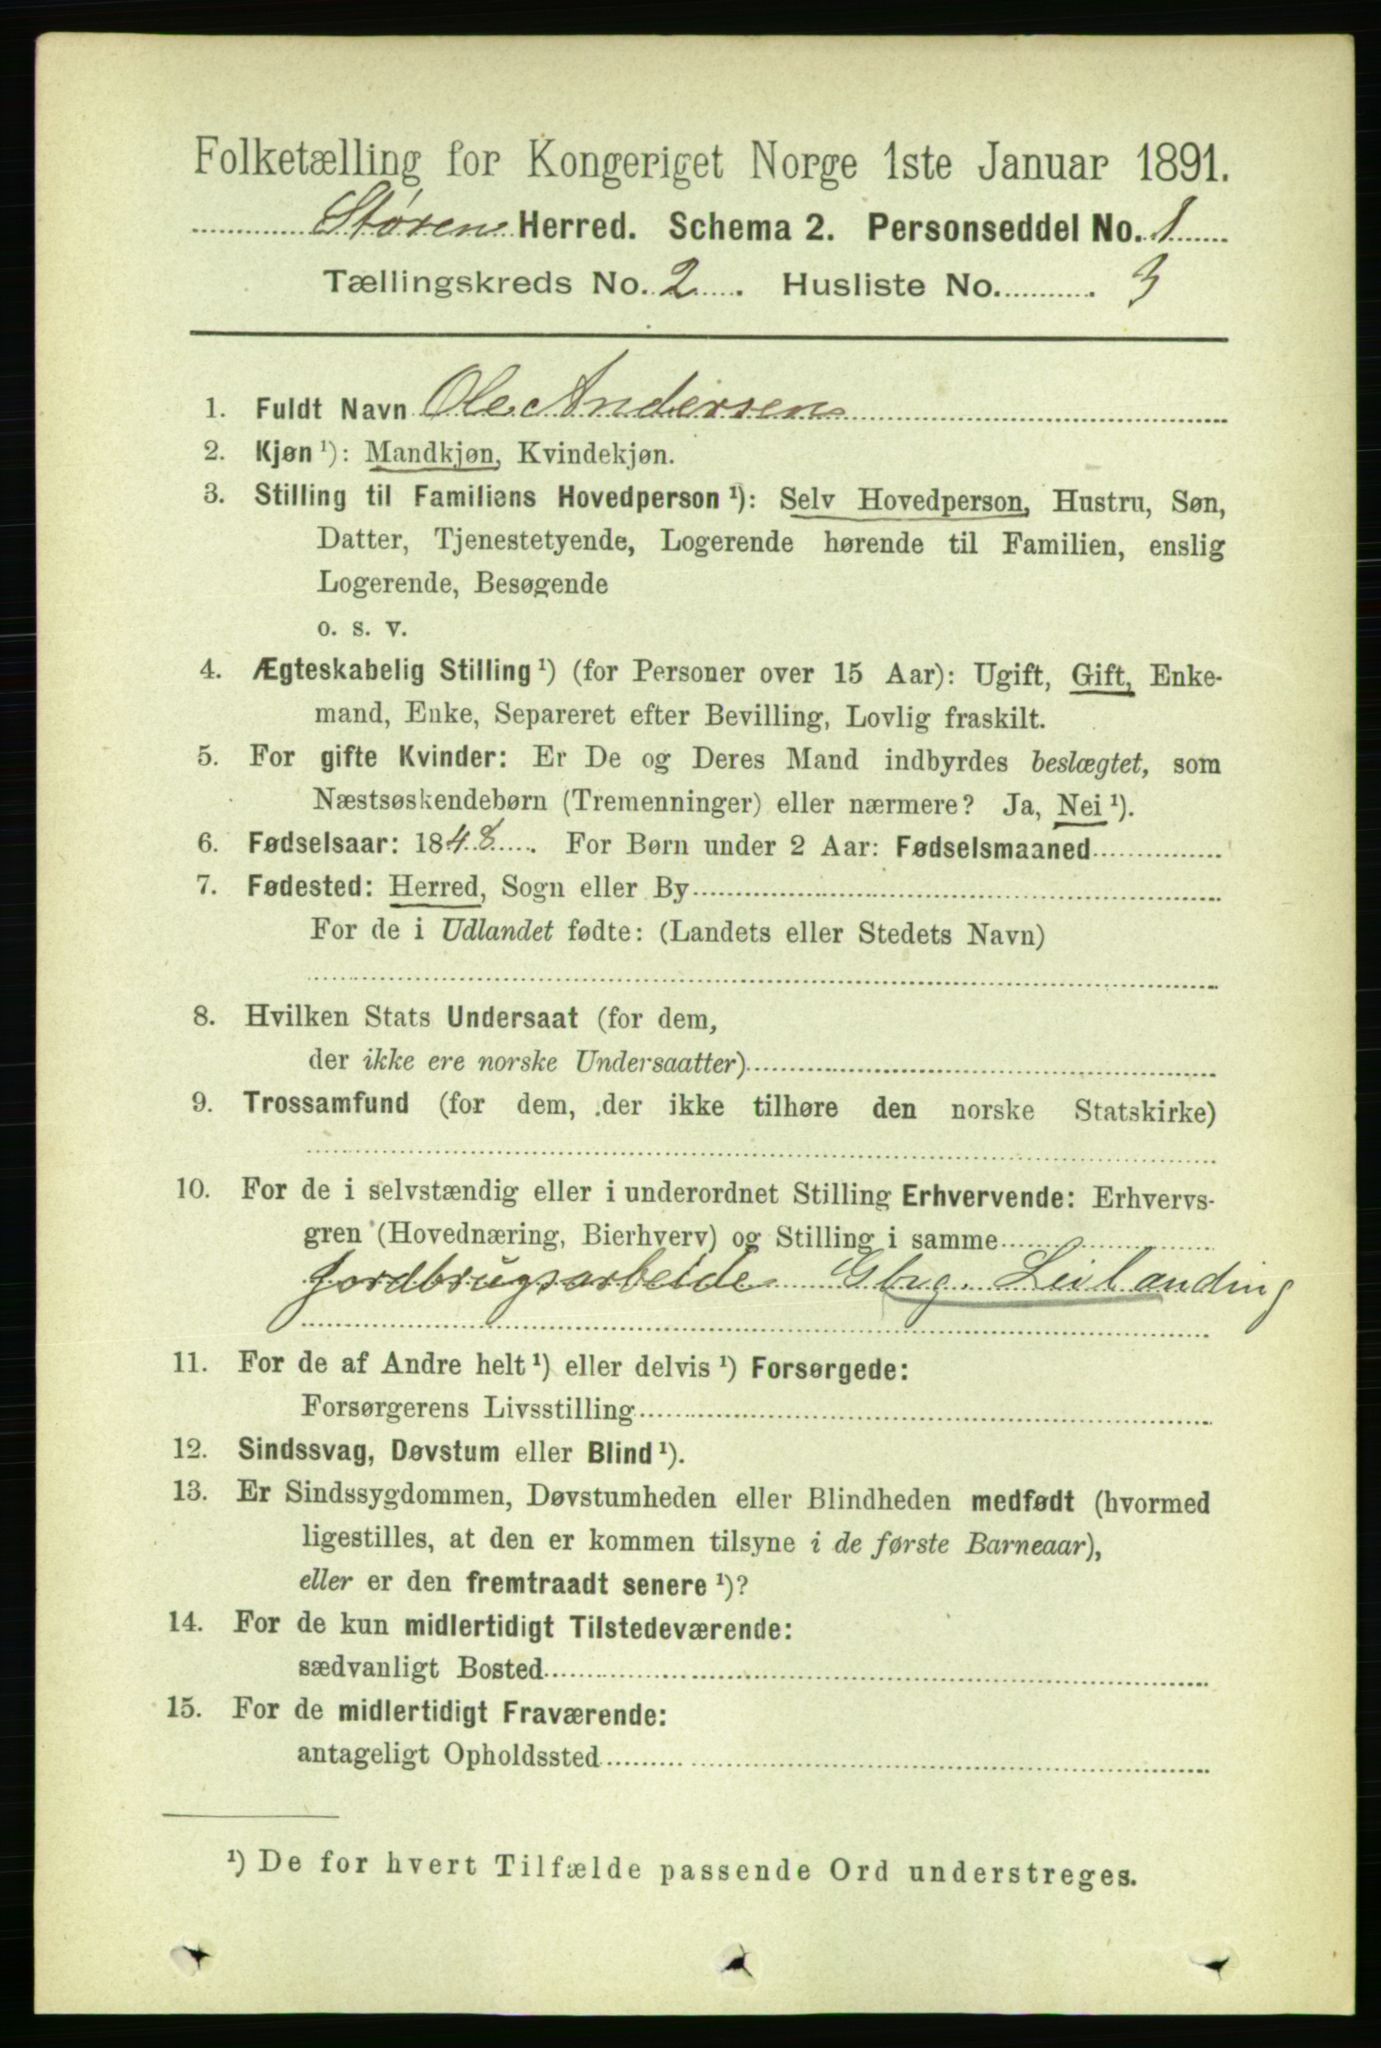 Folketælling for Kongeriget Norge 1ste Januar 1891.
Støren Herred. Schema 2. Personseddel No. 1
Tællingskreds No. 2. Husliste No. 3
1. Fuldt Navn Ole Andersen
2. Kjøn ¹): Mandkjøn, Kvindekjøn.
3. Stilling til Familiens Hovedperson ¹): Selv Hovedperson, Hustru, Søn,
Datter, Tjenestetyende, Logerende hørende til Familien, enslig
Logerende, Besøgende
o. s. v.
4. Ægteskabelig Stilling ¹) (for Personer over 15 Aar): Ugift, Gift, Enke-
mand, Enke, Separeret efter Bevilling, Lovlig fraskilt.
5. For gifte Kvinder: Er De og Deres Mand indbyrdes beslægtet, som
Næstsøskendebørn (Tremenninger) eller nærmere? Ja, Nei ¹).
6. Fødselsaar: 1848. For Børn under 2 Aar: Fødselsmaaned
7. Fødested: Herred, Sogn eller By
For de i Udlandet fødte: (Landets eller Stedets Navn)
8. Hvilken Stats Undersaat (for dem,
der ikke ere norske Undersaatter)
9. Trossamfund (for dem, der ikke tilhøre den norske Statskirke)
10. For de i selvstændig eller i underordnet Stilling Erhvervende: Erhvervs-
gren (Hovednæring, Bierhverv) og Stilling i samme
Jordbrugsarbeide Gbrg. Leilanding
11. For de af Andre helt ¹) eller delvis ¹) Forsørgede:
Forsørgerens Livsstilling
12. Sindssvag, Døvstum eller Blind ¹).
13. Er Sindssygdommen, Døvstumheden eller Blindheden medfødt (hvormed
ligestilles, at den er kommen tilsyne i de første Barneaar),
eller er den fremtraadt senere ¹)?
14. For de kun midlertidigt Tilstedeværende:
sædvanligt Bosted
15. For de midlertidigt Fraværende:
antageligt Opholdssted
¹) De for hvert Tilfælde passende Ord understreges.